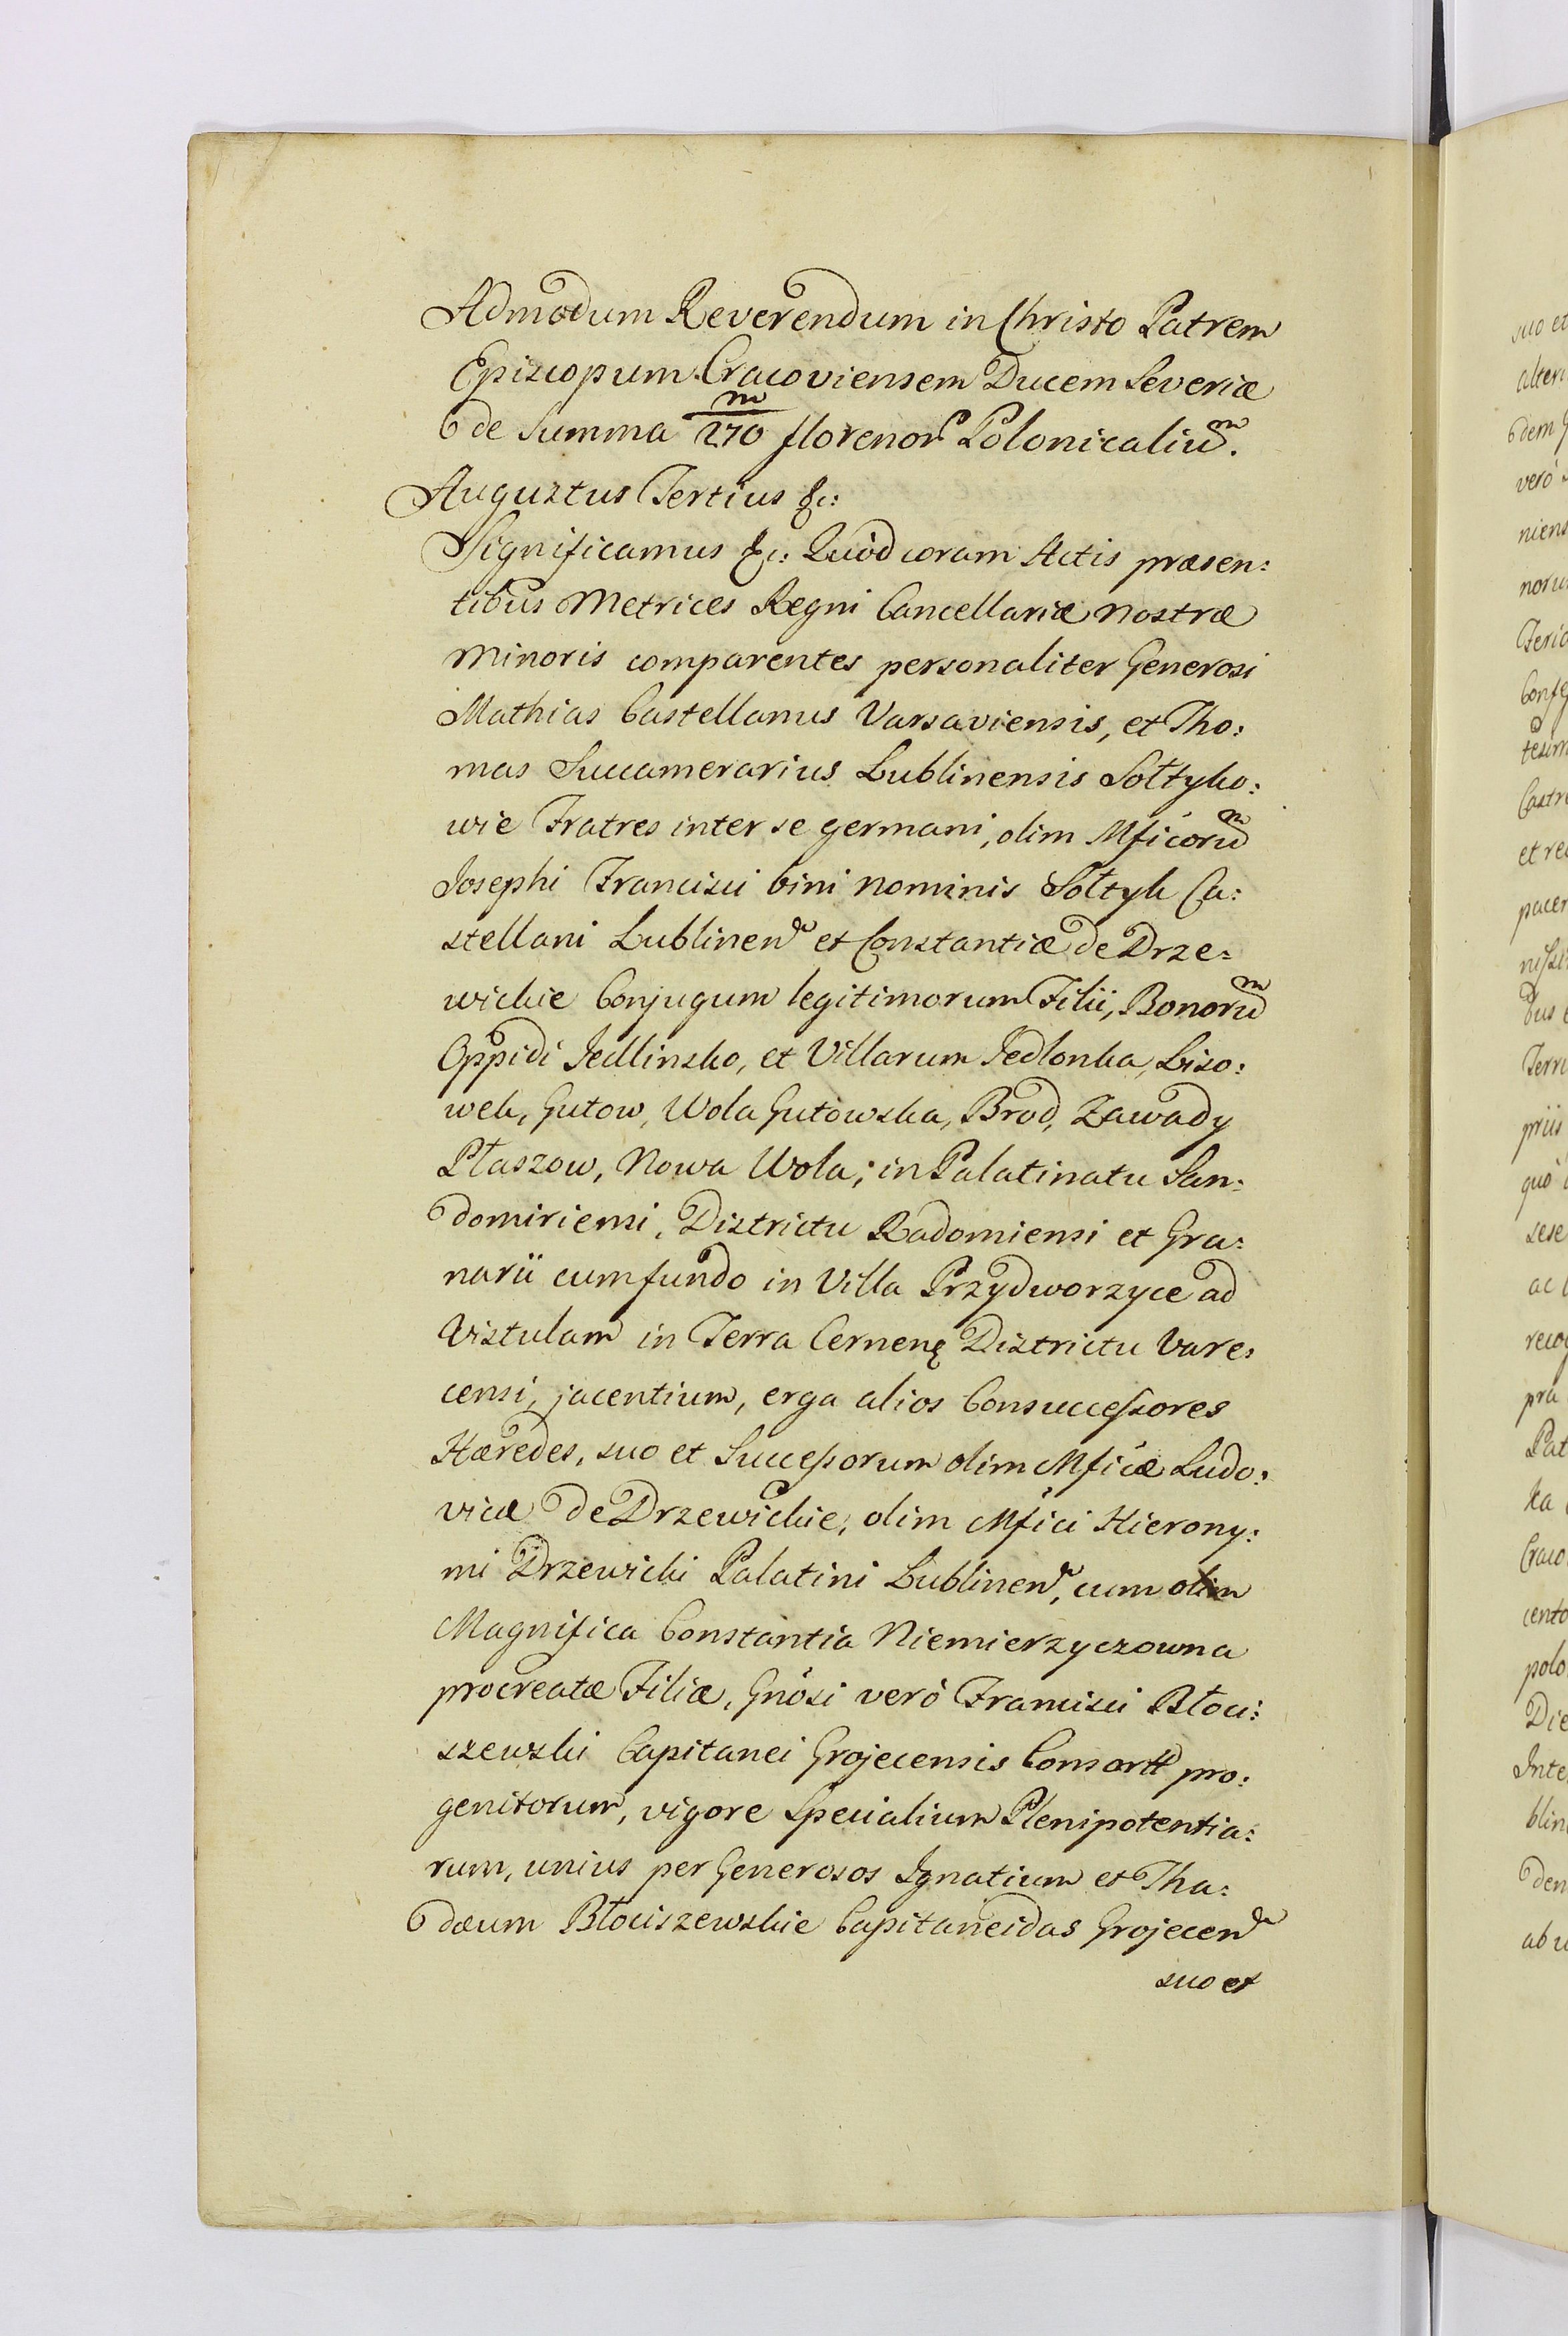 Admodum Reverendum in Christo Patrem
Episcopum Cracoviensem Ducem Severiæ
de Summa 270 m florenor Polonicaliũm.
Augustus Tertius &c:
Significamus &c: Quòd coram Actis præsen:
tibus Metrices Regni Cancellariæ nostræ
Minoris comparentes personaliter Generosi
Mathias Castellanus Varsaviensis, et Tho:
mas Succamerarius Lublinensis Sołtyko:
wie Fratres inter se germani, olim Mficorũm
Josephi Francisci bini nominis Sołtyk Ca:
stellani Lublinen et Constantiæ de Drze:
wickie Conjugum legitimorum Filii, Bonorũm
Oppidi Jedlinsko, et Villarum Jedlonka, Liso:
wek, Gutow, Wola Gutowska, Brod, Zawady
Płaszow, Nowa Wola; in Palatinatu San:
domiriensi, Districtu Radomiensi et Gra:
narii cum fundo in Villa Przydworzyce ad
Vistulam in Terra Cernenę Districtu Vare:
censi, jacentium, erga alios Consuccessores
Hæredes, suo et Successorum olim Mficæ Ludo:
vicæ de Drzewickie, olim Mfici Hierony:
mi Drzewicki Palatini Lublinen, cum olim
Magnifica Constantia Niemierzyczowna
procreatæ Filiæ, Gnosi verò Francisci Błoci:
szewski Capitanei Grojecensis Consortt pro:
genitorum, vigore Specialium Plenipotentia:
rum, unius per Generosos Ignatium et Tha:
dæum Błociszewskie Capitaneidas Grojecen
suo et